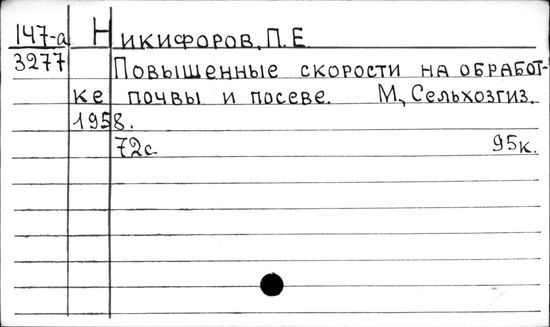 147-а Никифоров, П. Е
3277 Повышенные скорости на обработ-
ке почвы и посеве. М., Сельхозгиз,
1958.
72с. 95к.